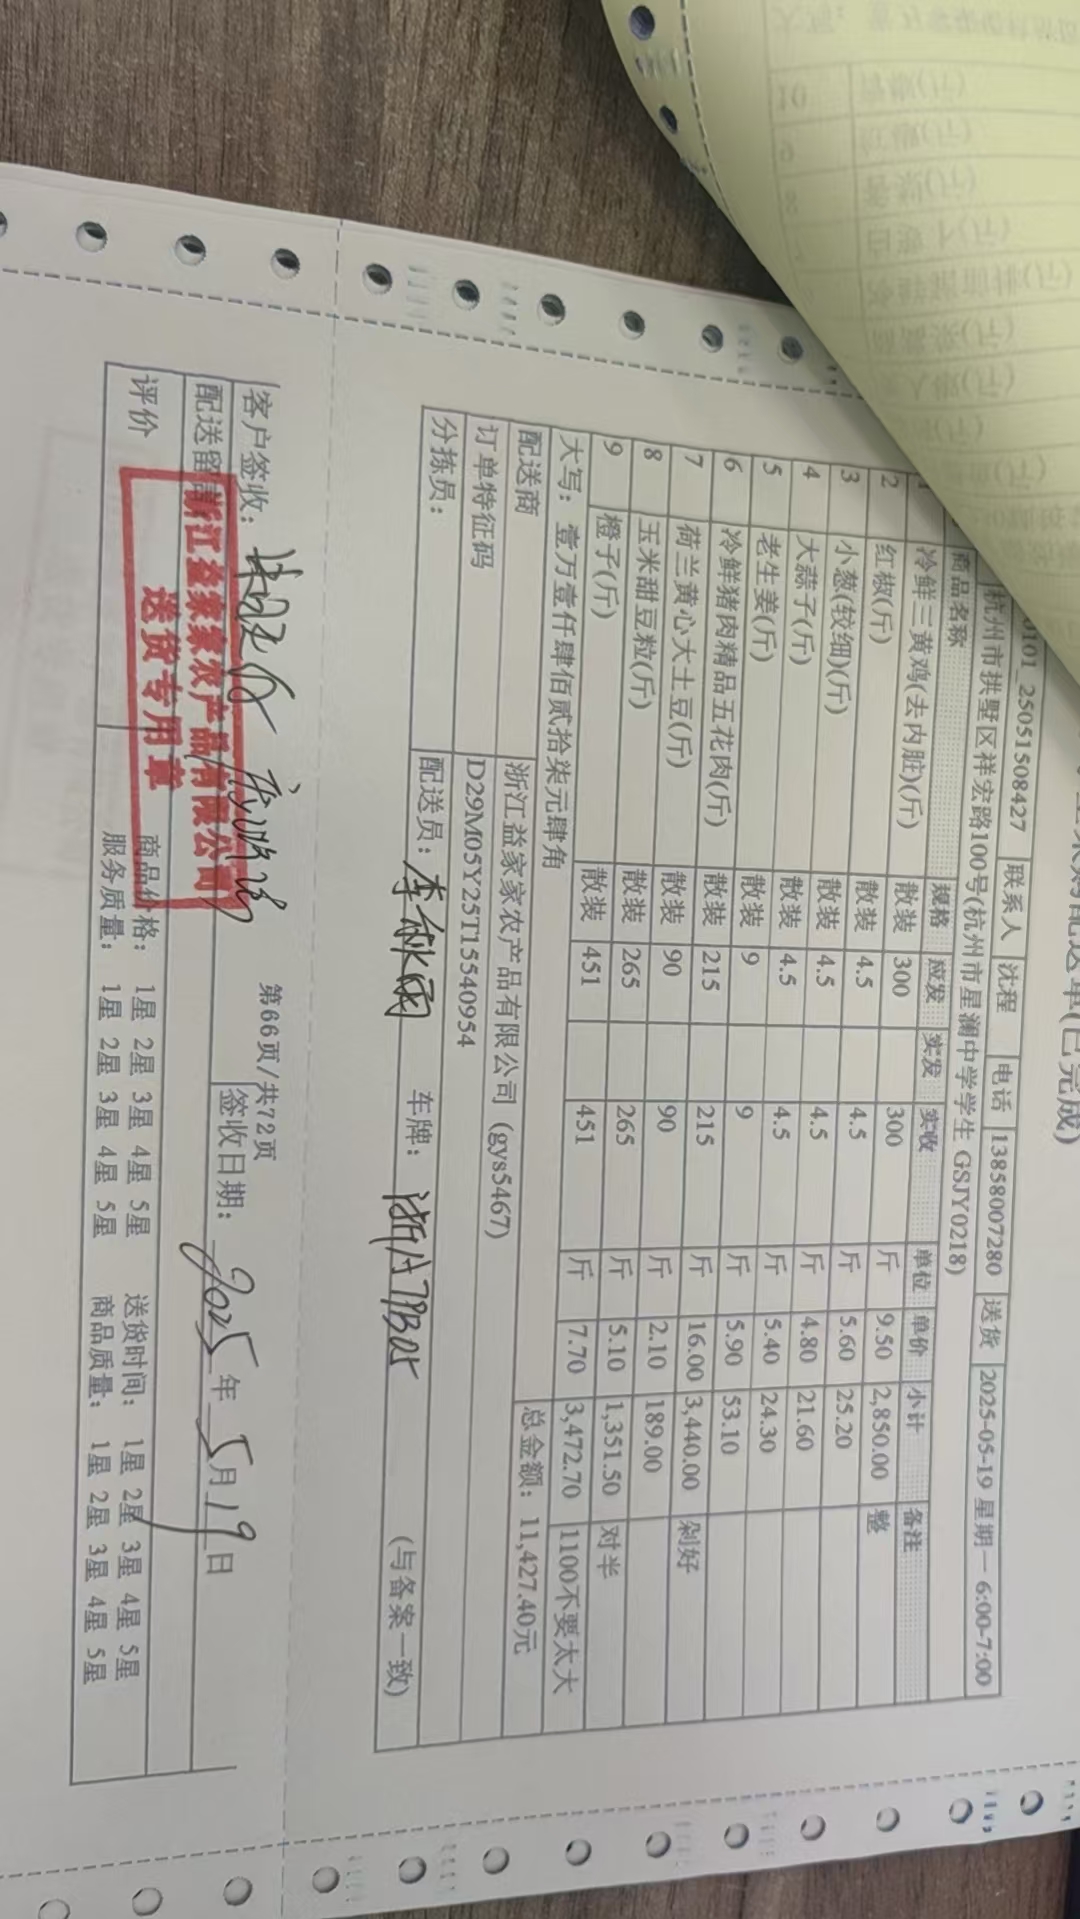 配送单(已完成)
0101_25051508427 联系人 沈程 电话 13858007280 送货 2025-05-19 星期一 6:00-7:00
杭州市拱墅区祥宏路100号(杭州市星澜中学学生 GSJY0218)
商品名称 规格 应发 实发 实收 单位 单价 小计 备注
1 冷鲜三黄鸡(去内脏)(斤) 散装 300 300 斤 9.50 2,850.00 整
2 红椒(斤) 散装 4.5 4.5 斤 5.60 25.20
3 小葱(较细)(斤) 散装 4.5 4.5 斤 4.80 21.60
4 大蒜子(斤) 散装 4.5 4.5 斤 5.40 24.30
5 老生姜(斤) 散装 9 9 斤 5.90 53.10
6 冷鲜猪肉精品五花肉(斤) 散装 215 215 斤 16.00 3,440.00 剁好
7 荷兰黄心大土豆(斤) 散装 90 90 斤 2.10 189.00
8 玉米甜豆粒(斤) 散装 265 265 斤 5.10 1,351.50 对半
9 橙子(斤) 散装 451 451 斤 7.70 3,472.70 1100不要太大
大写：壹万壹仟肆佰贰拾柒元肆角 总金额：11,427.40元
配送商 浙江益家家农产品有限公司 (gys5467)
订单特征码 D29M05Y25T15540954
分拣员： 配送员：李 雨 车牌： (与备案一致)
第66页/共72页
客户签收： 签收日期：2025年5月19日
配送留言
浙江益家家农产品有限公司
送货专用章
评价 商品价格： 1星 2星 3星 4星 5星 送货时间： 1星 2星 3星 4星 5星
服务质量： 1星 2星 3星 4星 5星 商品质量： 1星 2星 3星 4星 5星